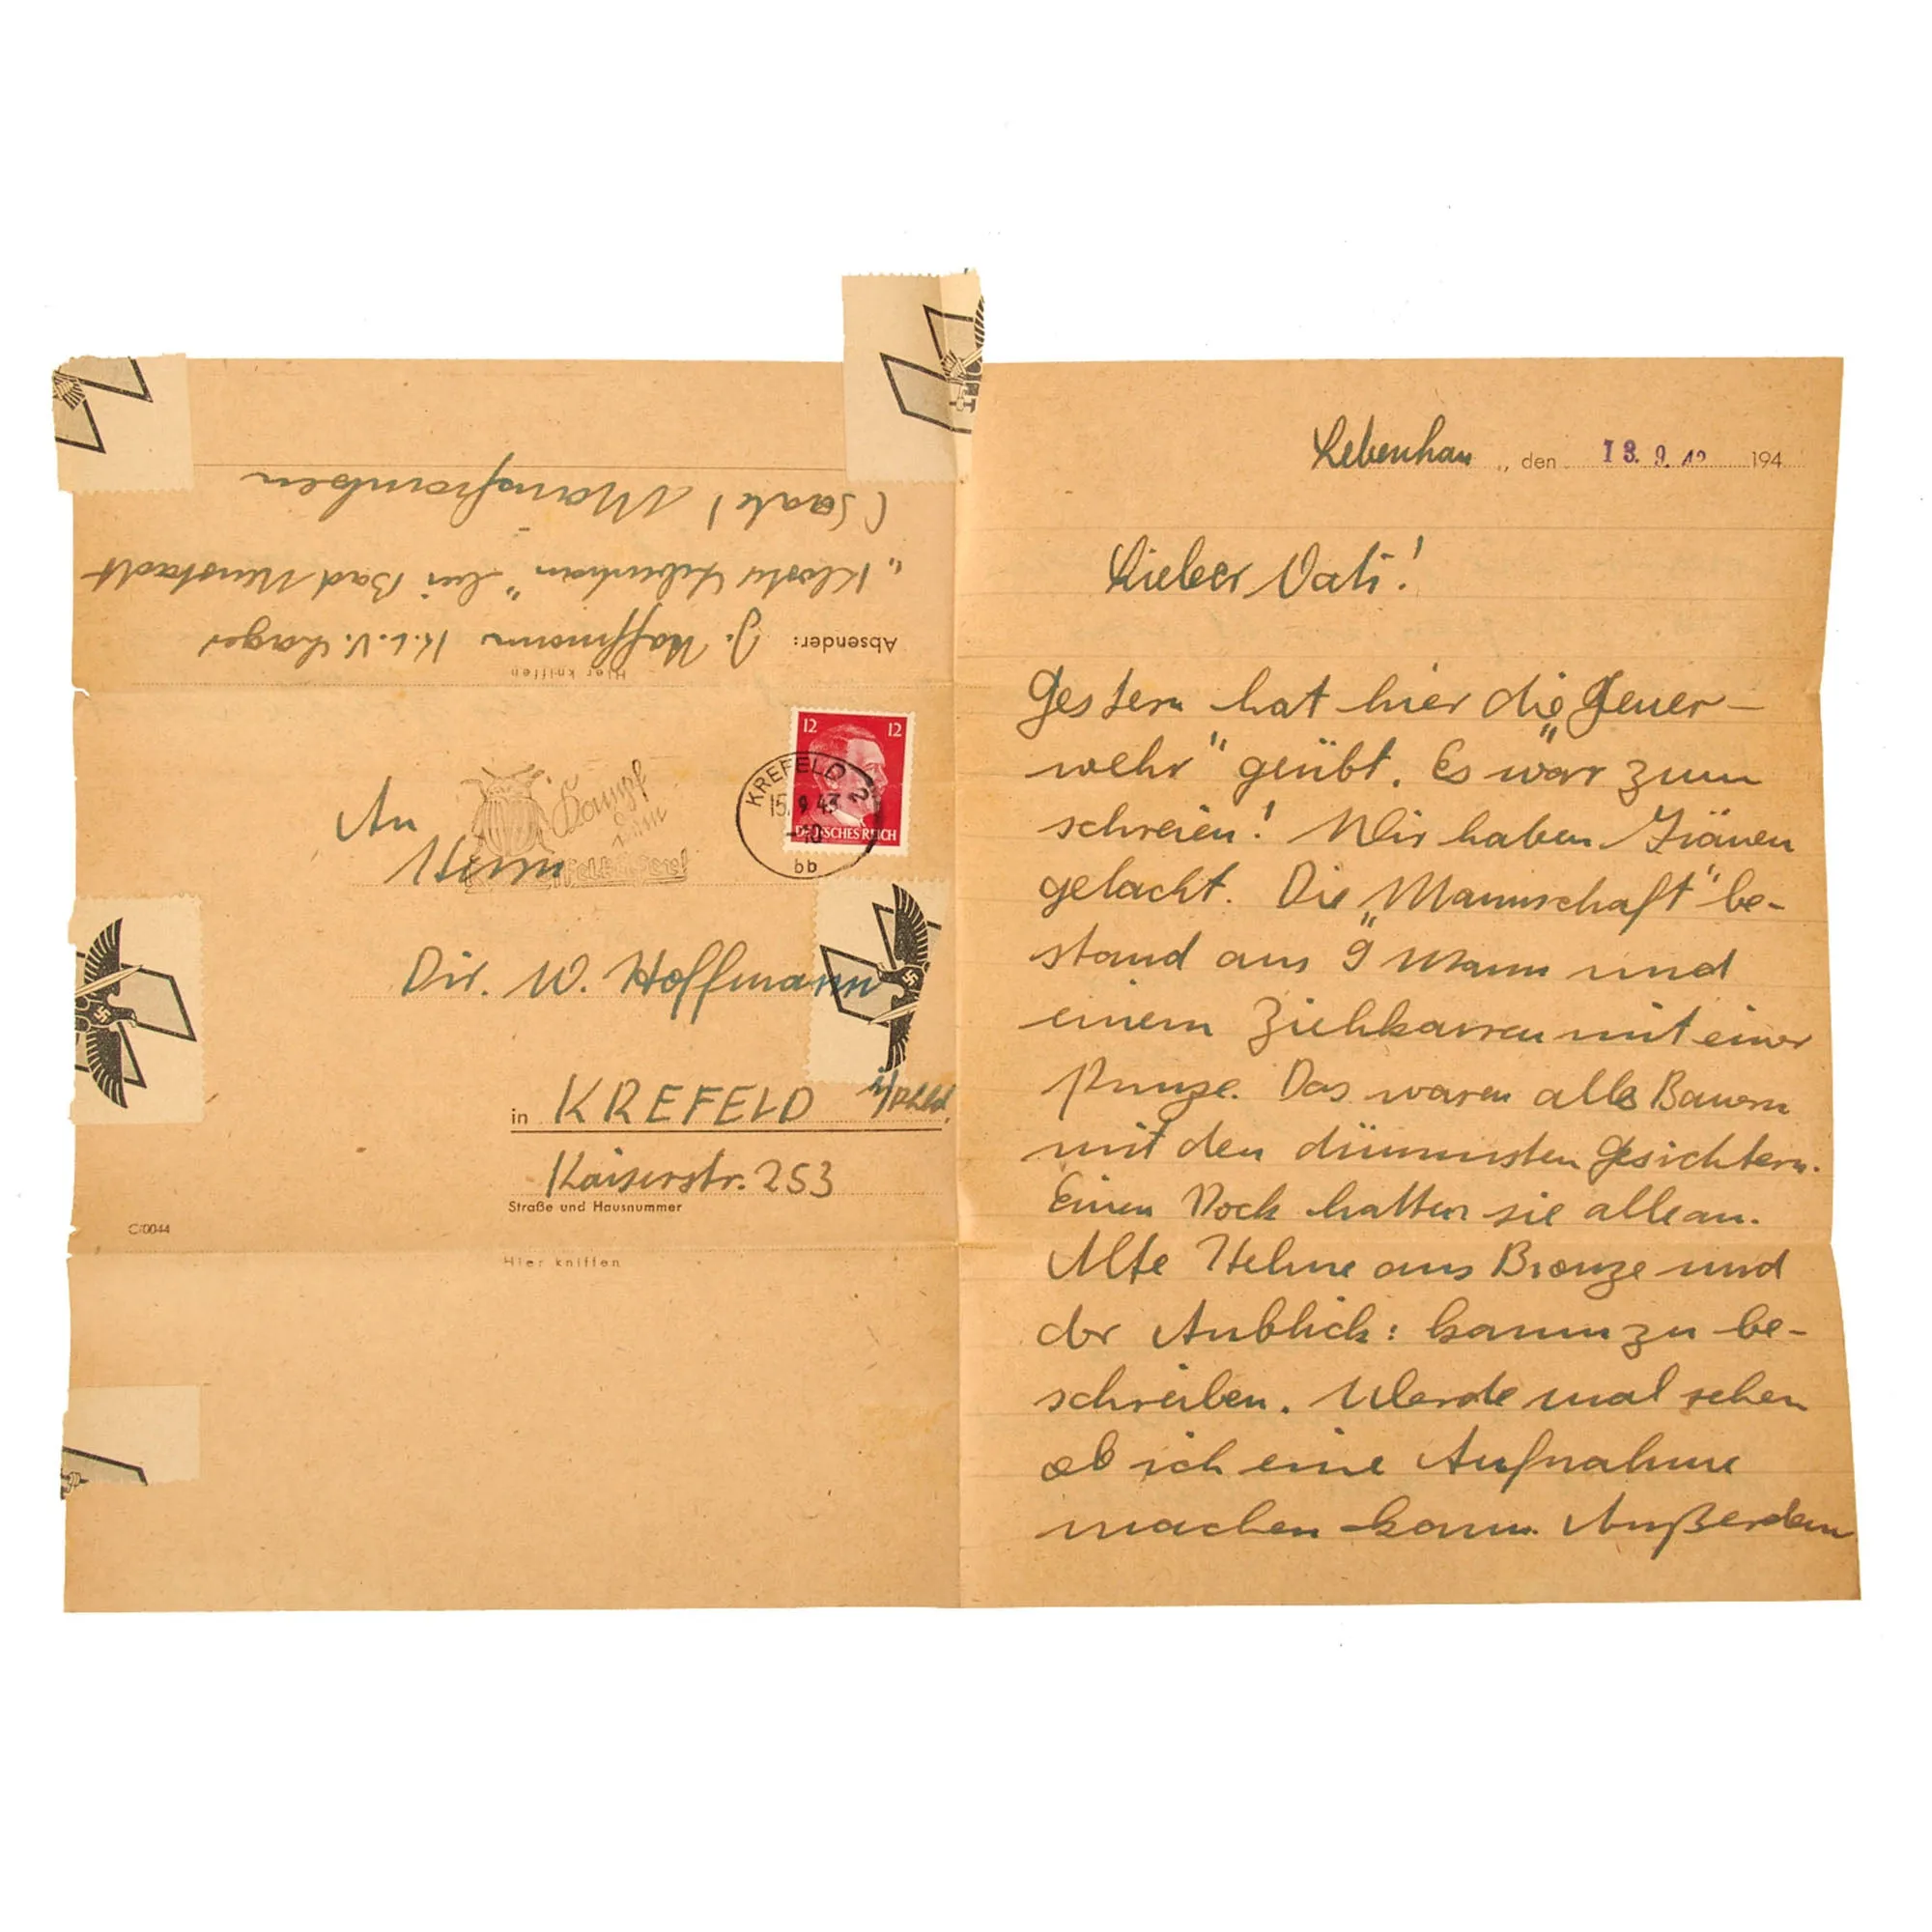 (Saale) Mainfranken
„Kloster Lebenhan" bei Bad Neustadt
Absender: J. Hoffmann K.L.V. Lager
Hier kniffen
12 12
DEUTSCHES REICH
KREFELD 2
15.9.43
-10
bb
Kampf
dem
An
Herrn
Dir. W. Hoffmann
in KREFELD i/Rhld.
Kaiserstr. 253
Straße und Hausnummer
C/0044
Hier kniffen
Lebenhan, den 13. 9. 194
Lieber Vati!
Gestern hat hier die „Feuer-
wehr" geübt. Es war zum
schreien! Wir haben Tränen
gelacht. Die „Mannschaft" be-
stand aus 9 Mann und
einem Ziehkarren mit einer
Das waren alles Bauern
mit den dümmsten Gesichtern.
Einen Rock hatten sie alle an.
Alte Helme aus Bronze und
der Anblick: kaum zu be-
schreiben. Werde mal sehen
ob ich eine Aufnahme
machen kann. Außerdem